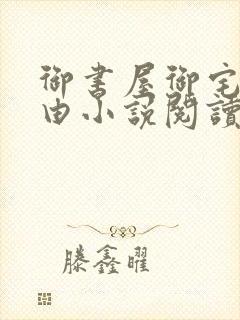 御書屋御宅
由小說閱讀
滕鑫曜